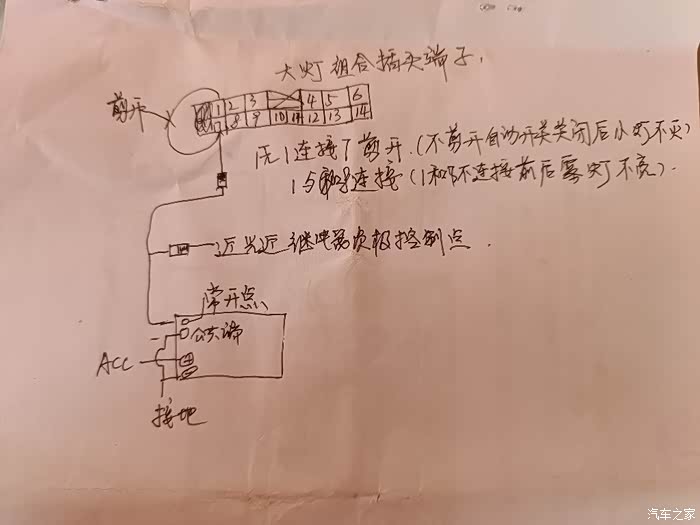 大灯组合插头端子.
剪开
1 2 3 4 5 6
7 8 9 10 11 12 13 14
1连接7剪开.(不剪开自动开关关闭后小灯不灭)
1与 连接(1和 不连接前后雾灯不亮).
近光近 继电器 极控制点.
常开点
公共端
ACC
接地
汽车之家